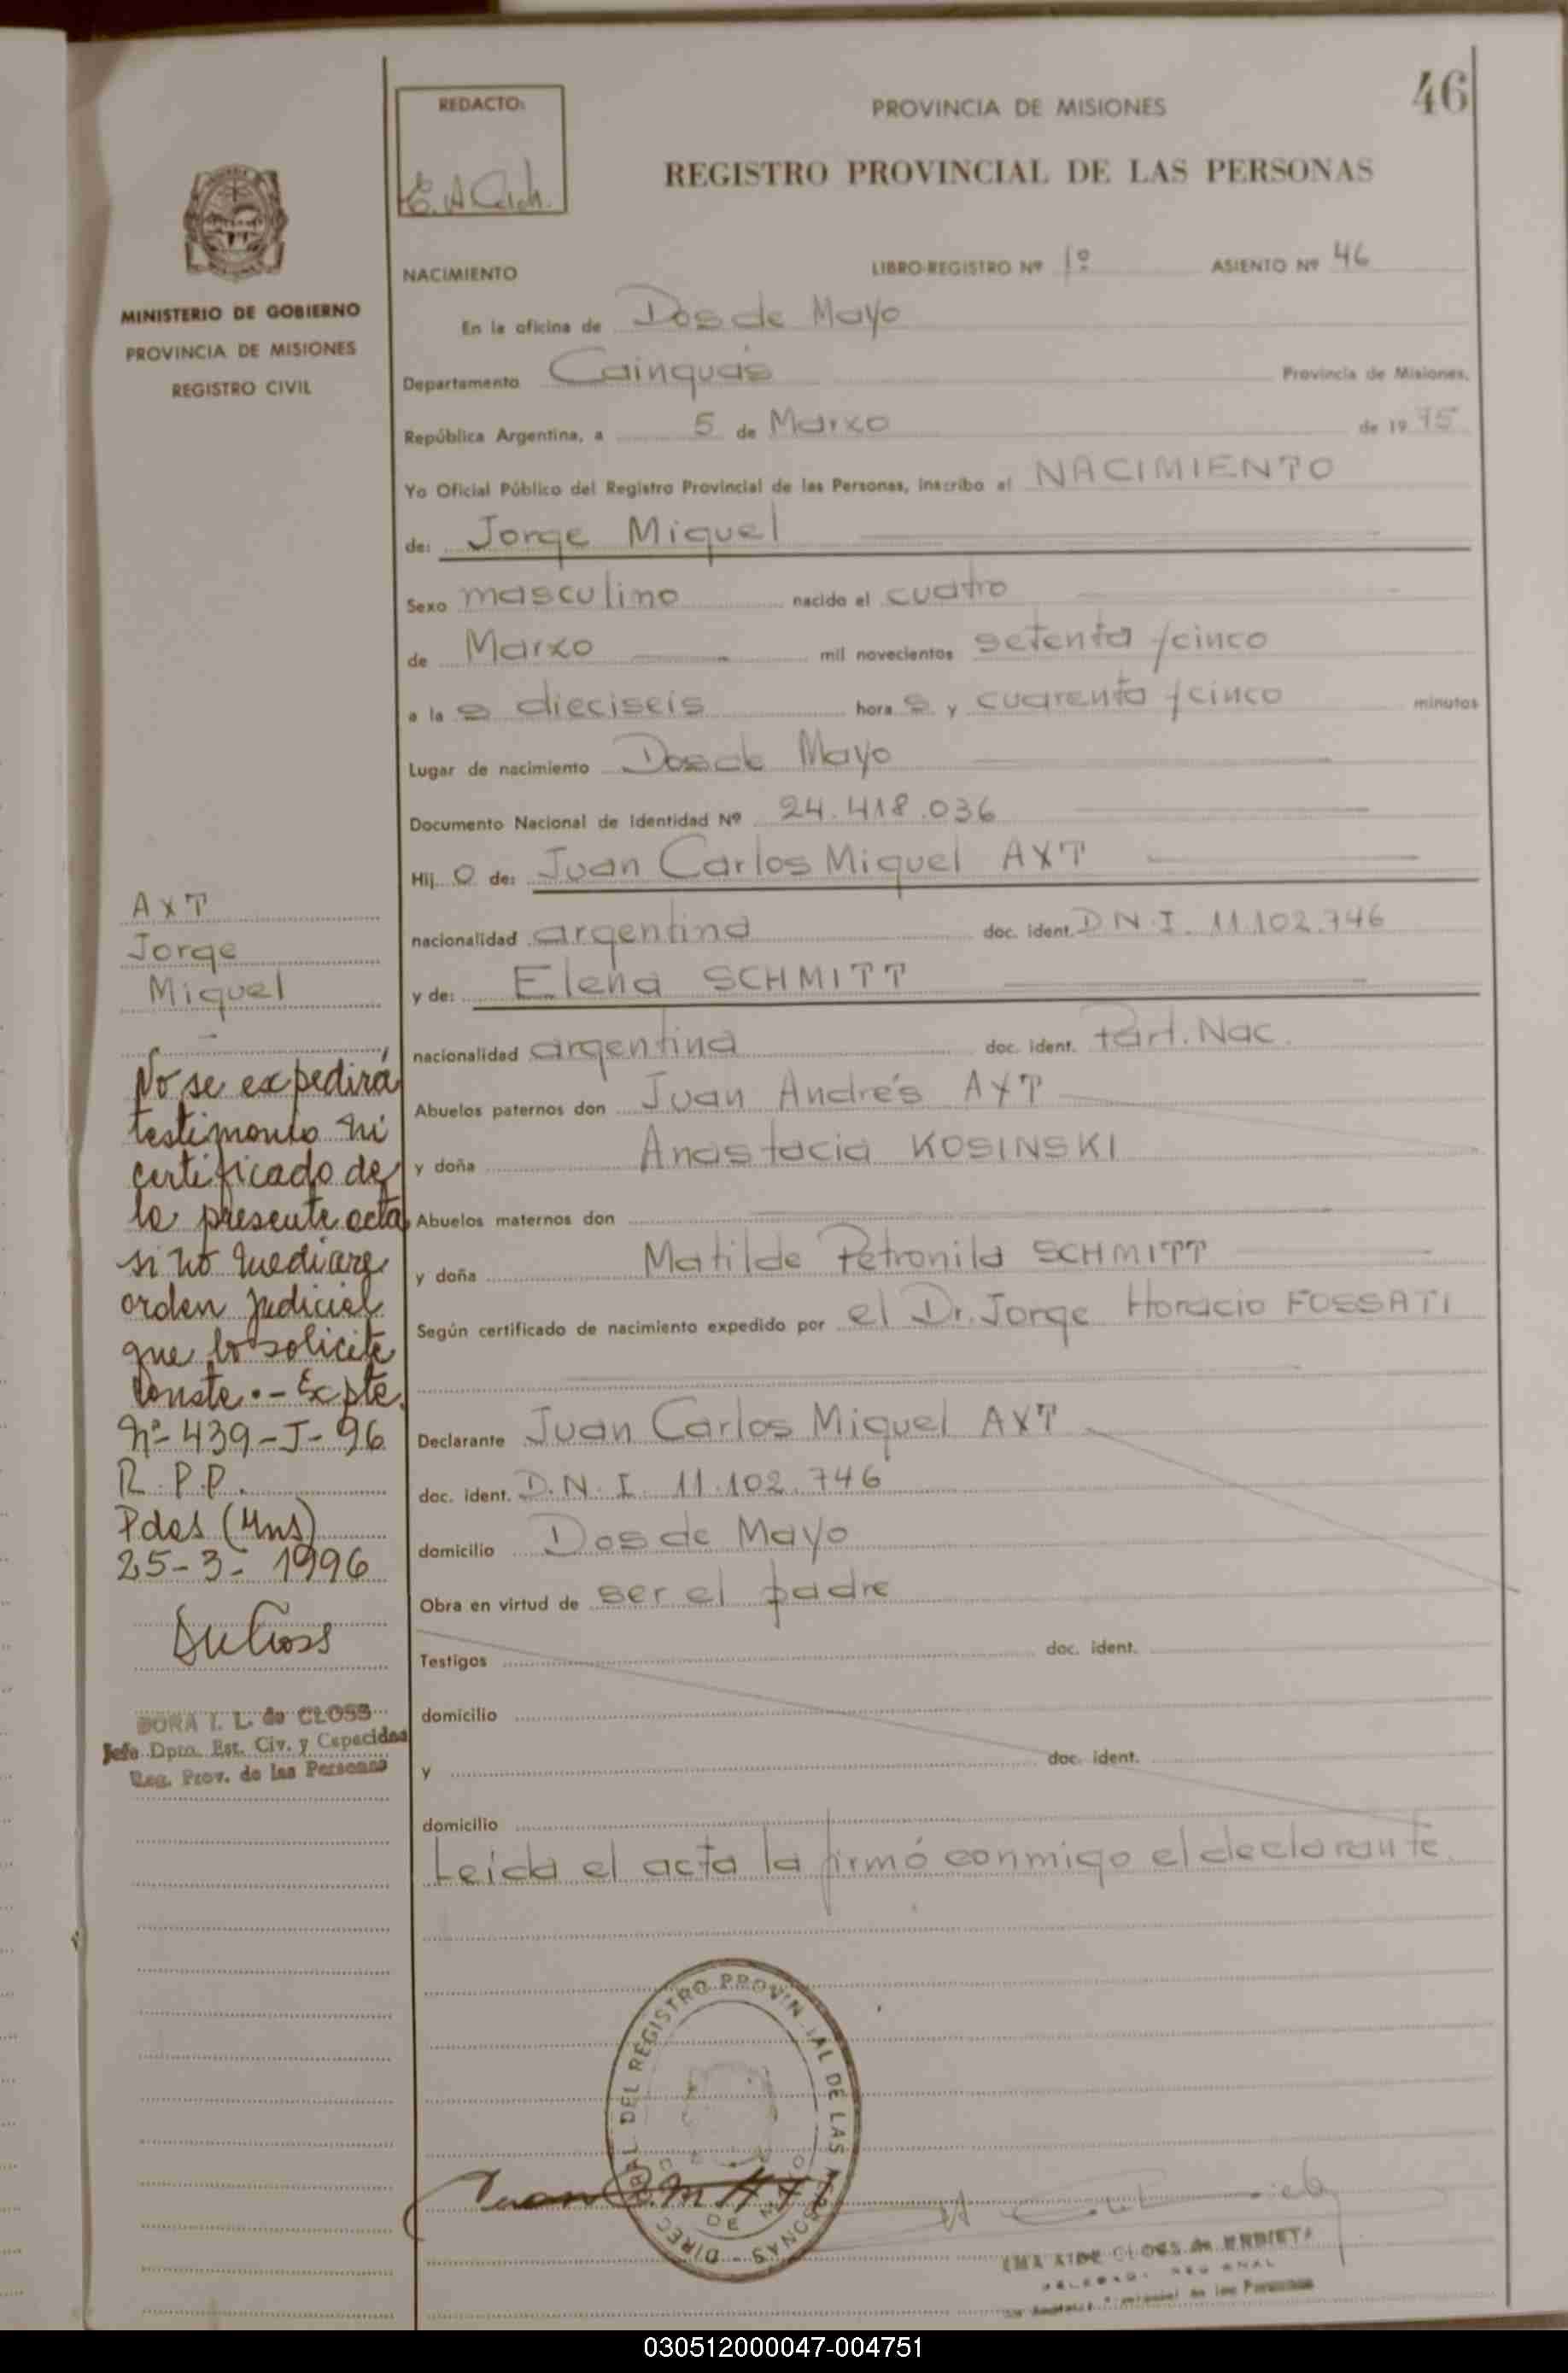 46
REDACTO:
PROVINCIA DE MISIONES
REGISTRO PROVINCIAL DE LAS PERSONAS
NACIMIENTO LIBRO-REGISTRO Nº 1º ASIENTO Nº 46
En la oficina de Dos de Mayo
Departamento Cainguás Provincia de Misiones,
República Argentina, a 5 de Marzo de 1975
Yo Oficial Público del Registro Provincial de las Personas, inscribo el NACIMIENTO
de: Jorge Miguel
Sexo masculino nacido el cuatro
de Marzo mil novecientos setenta y cinco
a la s dieciseis hora s y cuarenta y cinco minutos
Lugar de nacimiento Dos de Mayo
Documento Nacional de Identidad Nº 24.418.036
Hij o de: Juan Carlos Miguel AXT
nacionalidad argentina doc. ident. D.N.I. 11.102.746
y de: Elena SCHMITT
nacionalidad argentina doc. ident. Part. Nac.
Abuelos paternos don Juan Andrés AXT
y doña Anastacia KOSINSKI
Abuelos maternos don
y doña Matilde Petronila SCHMITT
Según certificado de nacimiento expedido por el Dr. Jorge Horacio FOSSATI
Declarante Juan Carlos Miguel AXT
doc. ident. D.N.I. 11.102.746
domicilio Dos de Mayo
Obra en virtud de ser el padre
Testigos doc. ident.
domicilio
y doc. ident.
domicilio
Leida el acta la firmó conmigo el declarante.
MINISTERIO DE GOBIERNO
PROVINCIA DE MISIONES
REGISTRO CIVIL
AXT
Jorge
Miguel
No se expedirá
testimonio ni
certificado de
la presente acta
si no mediare
orden judicial
que lo solicite
conste.- Expte.
Nº 439-J-96
R.P.P.
Pdas (Mns)
25-3-1996
DORA I. L. de CLOSS
Jefe Dpto. Est. Civ. y Capacidad
Reg. Prov. de las Personas
DEL REGISTRO PROVINCIAL DE LAS PERSONAS
Juan C. M. AXT
030512000047-004751